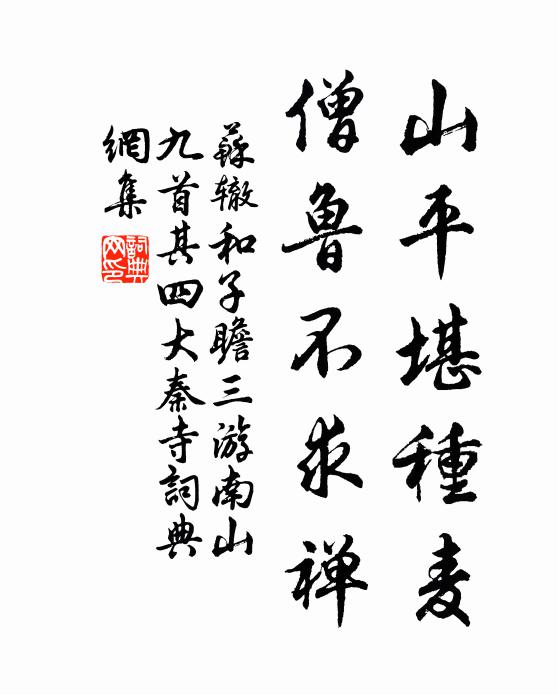 山平堪種麦
僧魯不求禅
蘇辙和子瞻三游南山
九首其四大秦寺詞典
網集
詞典
网印